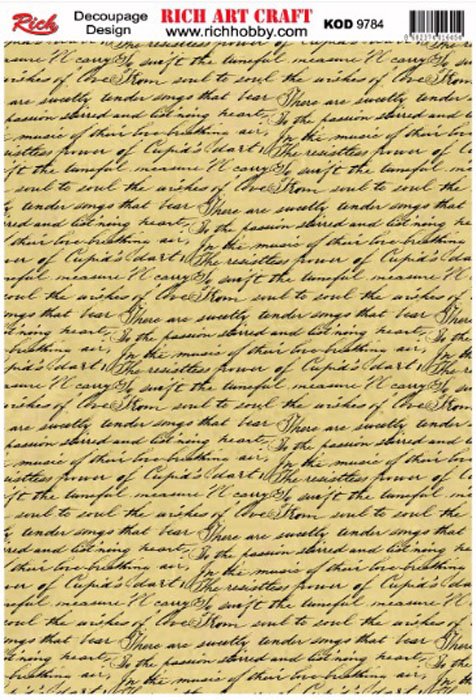 Rich Decoupage Design RICH ART CRAFT www.richhobby.com KOD 9784
The resistless power of Cupid's
sure'll carry So swift the tuneful measure'll carry So
wishes of Love From soul to soul the wishes of Love From
are sweetly tender songs that bear There are sweetly tender
passion stirred and list'ning heart, To the passion stirred and
music of their love-breathing air, In the music of their lov
istless power of Cupid's dart! The resistless power of C
ft the tuneful measure'll carry So swift the tuneful me
soul to soul the wishes of Love From soul to soul the
tender songs that bear There are sweetly tender
red and list'ning heart, To the passion stirred and list'ning
their love-breathing air, In the music of their love-breathing
er of Cupid's dart! The resistless power of Cupid's da
eful measure'll carry So swift the tuneful measure
oul the wishes of Love From soul to soul the wishes of
ngs that bear There are sweetly tender songs that bear There
ning heart, To the passion stirred and list'ning heart, To the
breathing air, In the music of their love-breathing air, In
pid's dart! The resistless power of Cupid's dart! The res
sure'll carry So swift the tuneful measure'll carry So
wishes of Love From soul to soul the wishes of Love From
are sweetly tender songs that bear There are sweetly tender
passion stirred and list'ning heart, To the passion stirred and
music of their love-breathing air, In the music of their lov
istless power of Cupid's dart! The resistless power of C
ft the tuneful measure'll carry So swift the tuneful me
soul to soul the wishes of Love From soul to soul the
tender songs that bear There are sweetly tender
red and list'ning heart, To the passion stirred and list'ning
their love-breathing air, In the music of their love-breathing
er of Cupid's dart! The resistless power of Cupid's da
eful measure'll carry So swift the tuneful measure
oul the wishes of Love From soul to soul the wishes of
ngs that bear There are sweetly tender songs that bear There
ning heart, To the passion stirred and list'ning heart, To the
breathing air, In the music of their love-breathing air, In